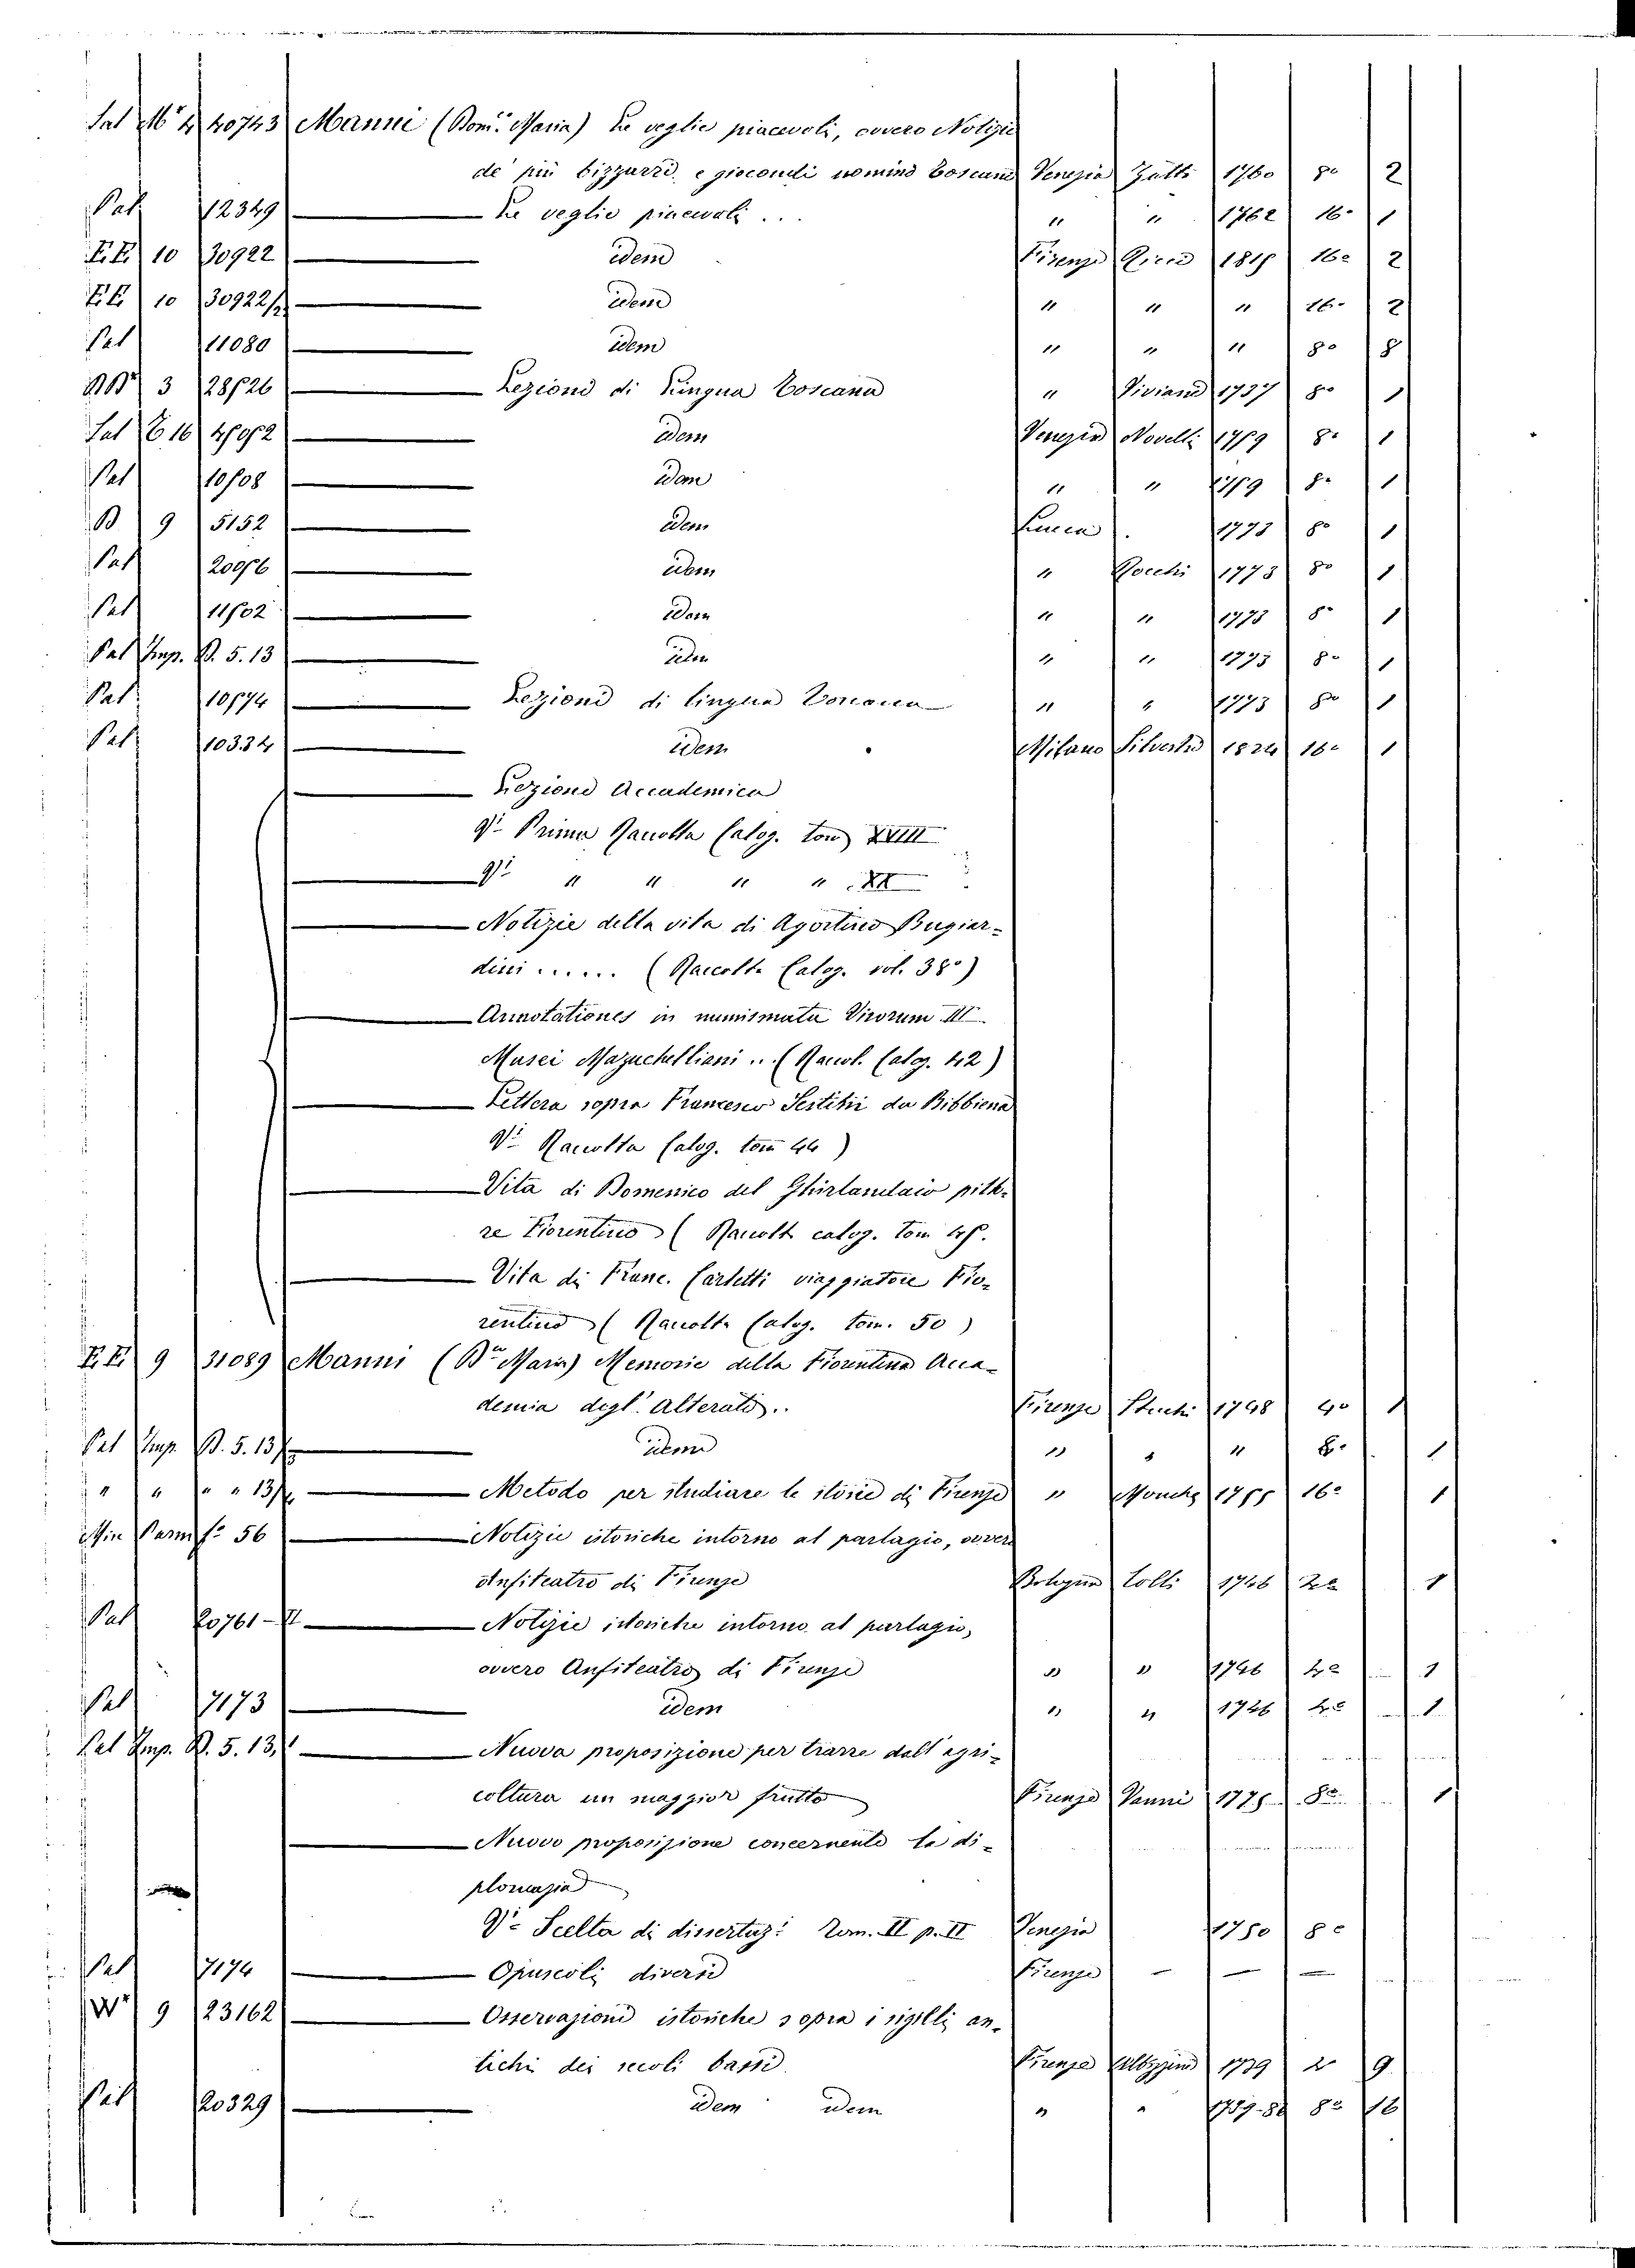 Sal M 4 40743 Manni (Dom. Maria) Le veglie piacevoli, ovvero Notizie
de' più bizzarri, e giocondi uomini toscani Venezia Zatta 1760 8o 2
Pal 12349 Le veglie piacevoli ... " " 1762 16o 1
E.E. 10 30922 idem Firenze Ricci 1815 16o 2
E.E. 10 30922/2 idem " " " 16o 2
Pal 11080 idem " " " 8o 8
3 28526 Lezioni di Lingua toscana " Viviani 1737 8o 1
Sal E 16 idem Venezia Novelli 1759 8o 1
Pal 10508 idem " " 1759 8o 1
B 9 5152 idem Lucca 1773 8o 1
Pal idem " Rocchi 1773 8o 1
Pal 11502 idem " " 1773 8o 1
Pal Imp. B. 5. 13 idem " " 1773 8o 1
Pal 10574 Lezioni di lingua Toscana " " 1773 8o 1
Pal 10334 idem Milano Silvestri 1824 16o 1
Lezione Accademica
Va Prima Raccolta Calog. tom XVIII
Va " " " " XX
Notizie della vita di Agostino Bugiar-
dini ...... (Raccolta Calog. vol. 38o)
Annotationes in numismata Virorum Ill
Musei Mazuchelliani ... (Raccol. Calog. 42)
Lettera sopra Francesco Sestini da Bibbiena
Va Raccolta Calog. tom 44)
Vita di Domenico del Ghirlandaio pitto-
re Fiorentino (Raccolt calog. tom 45.
Vita di Franc. Carletti viaggiatore Fio-
rentino (Raccolta Calog. tom. 50)
E.E. 9 31089 Manni (Dco Maria) Memorie della Fiorentina Acca-
demia degl' Alterati.. Firenze Stecchi 1748 4o 1
Pal Imp. B. 5. 13 idem " " " 8o 1
" " " " 13 Metodo per studiare le storie di Firenze " Moucke 1755 16o 1
Min Parm fo 56 Notizie istoriche intorno al parlagio, ovvero
Anfiteatro di Firenze Bologna Colli 1746 4o 1
Pal 20761-II Notizie istoriche intorno al parlagio,
ovvero Anfiteatro di Firenze " " 1746 4o 1
Pal 7173 idem " " 1746 4o 1
Pal Imp. B. 5. 13, Nuova proposizione per trarre dall'agri-
coltura un maggior frutto Firenze Vanni 1775 8o 1
Nuovo proposizione concernente la di-
plomazia
Va Scelta di dissertaz: Tom. II p. II Venezia 1750 8o
Pal 7174 Opuscoli diversi Firenze — — —
W 9 23162 Osservazioni istoriche sopra i sigilli an-
tichi dei secoli bassi Firenze Albizzini 1739 9
Pal 20329 idem idem " " 8o